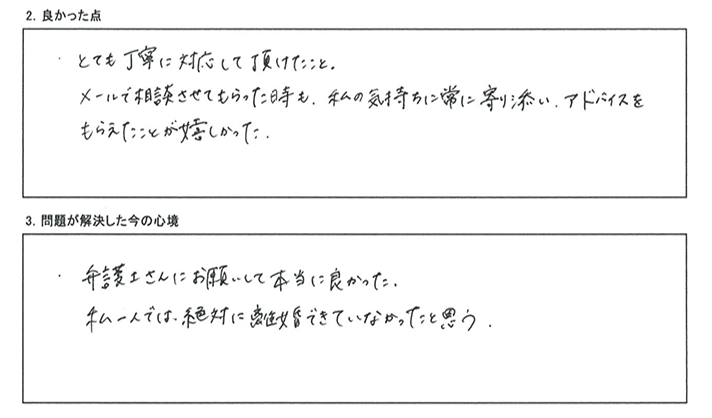 2. 良かった点
・とても丁寧に対応して頂けたこと。
メールで相談させてもらった時も、私の気持ちに常に寄り添い、アドバイスを
もらえたことが嬉しかった。
3. 問題が解決した今の心境
・弁護士さんにお願いして本当に良かった。
私一人では、絶対に離婚できていなかったと思う。